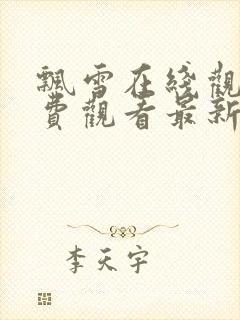 飄雪在綫觀
費觀看最新
李天宇